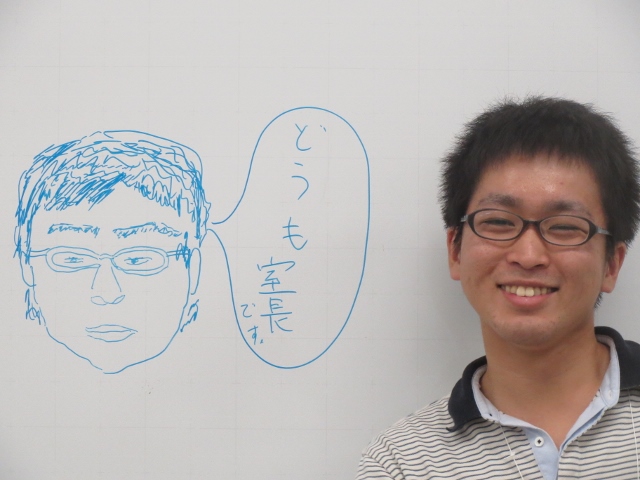 どうも室長
です。